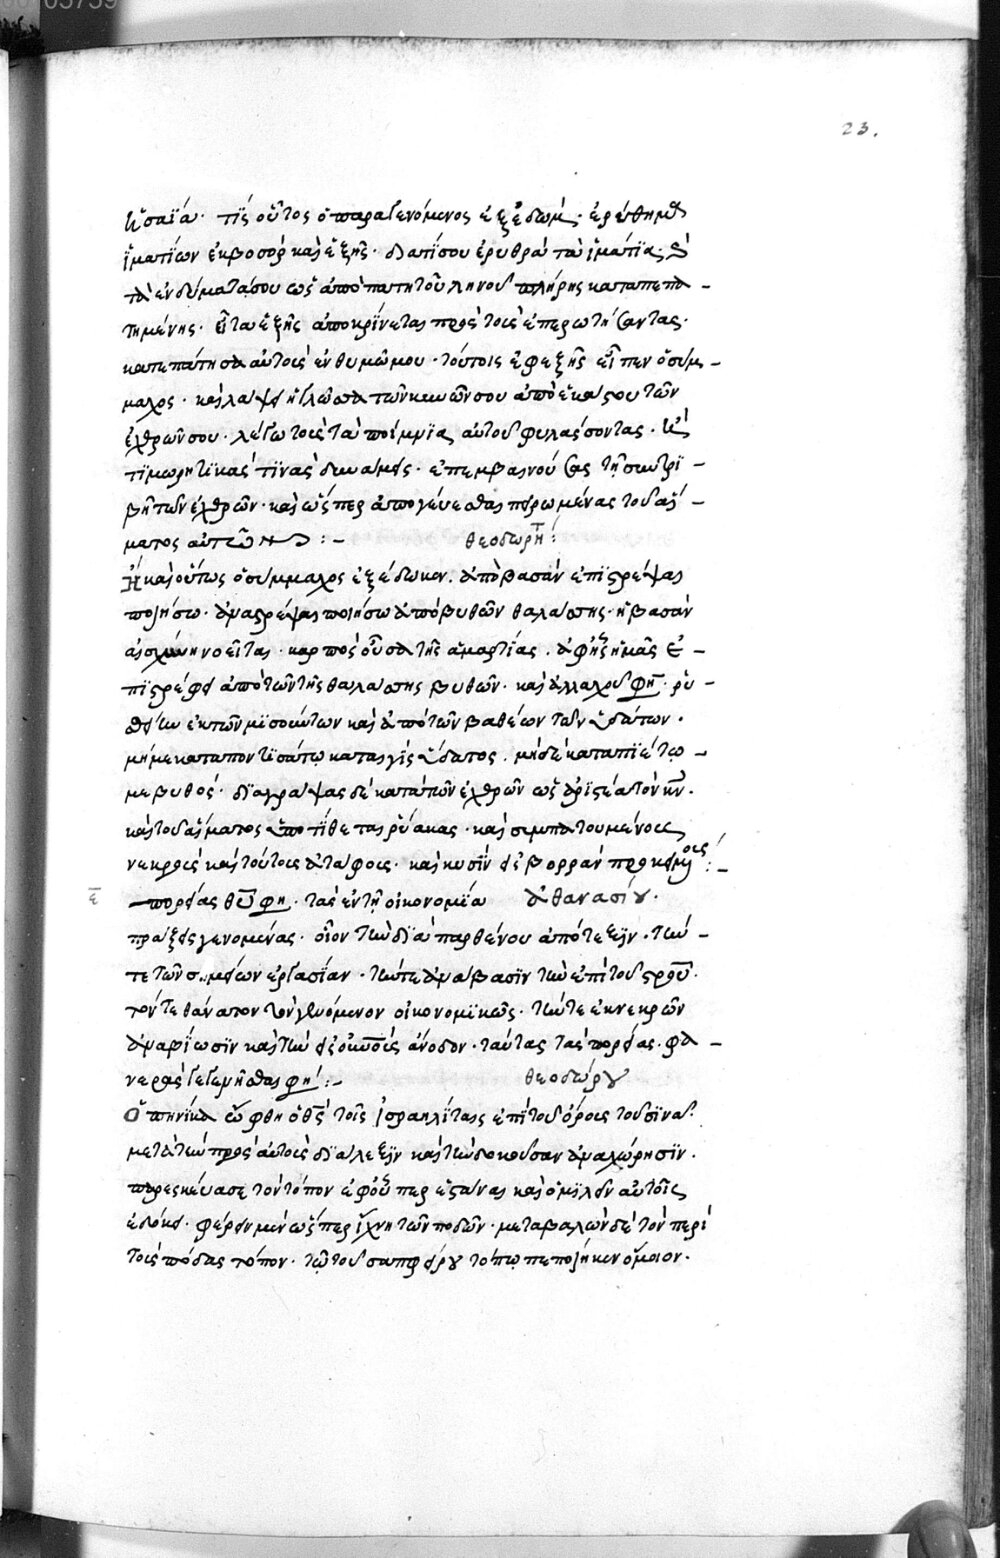 23.
ἠσαΐα· τίς οὗτος ὁ παραγενόμενος ἐξ ἐδώμ· ἐρύθημα
ἱματίων ἐκ βοσόρ καὶ ἑξῆς· διατί σου ἐρυθρὰ τὰ ἱμάτια· καὶ
τὰ ἐνδύματά σου ὡς ἀπὸ πατητοῦ ληνοῦ πλήρης καταπεπα –
τημένης· εἶτα ἑξῆς ἀποκρίνεται πρὸς τοὺς ἐπερωτήσαντας·
κατεπάτησα αὐτοὺς ἐν θυμῶ μου· τούτοις ἐφεξῆς εἶπεν ὁ σύμ –
μαχος· καὶ λάψει ἡ γλῶσσα τῶν κυνῶν σου ἀπὸ ἑκάστου τῶν
ἐχθρῶν σου· λέγω τοὺς τὰ ποίμνια αὐτοῦ φυλάσσοντας· ἢ
τιμωρητικάς τινας δυνάμεις· ἐπεμβαινούσας τῇ συντρι –
βῇ τῶν ἐχθρῶν· καὶ ὥσπερ ἀπογεύεσθαι πειρωμένας τοῦ αἵ –
ματος αὐτῶν :– θεοδωρήτ :
καὶ οὕτως ὁ σύμμαχος ἐξέδωκεν. ἀπὸ βασὰν ἐπιστρέψαι
ποιήσω· ἀναστρέψαι ποιήσω ἀπὸ βυθῶν θαλάσσης· ἡ βασὰν
αἰσχύνη νοεῖται· καρπὸς οὖσα τῆς ἁμαρτίας. ἀφ' ἧς ἡμᾶς ἐ –
πιστρέφει ἀπὸ τῶν τῆς θαλάσσης βυθῶν· καὶ ἀλλαχοῦ φη· ῥυ –
σθείην ἐκ τῶν μισούντων καὶ ἀπὸ τῶν βαθέων τῶν ὑδάτων·
μή με καταποντισάτω καταιγὶς ὕδατος. μηδὲ καταπιέτω –
με βυθός· διαγράψας δὲ κατὰ τῶν ἐχθρῶν
καὶ τοῦ αἵματος ὑποτίθεται ῥύακας· καὶ συμπατουμένους
νεκροὺς καὶ τούτους ἀτάφους· καὶ κυσὶν εἰς βορρὰν προκειμένοις :–
ε πορείας θυ φη· τὰς ἐν τῇ οἰκονομία ἀθανασίου·
πράξεις γενομένας· οἷον τὴν διὰ παρθένου ἀπότεξιν· τήν –
τε τῶν σημείων ἐργασίαν· τήν τε ἀνάβασιν τὴν ἐπὶ τοῦ στρου·
τόν τε θάνατον τὸν γενόμενον οἰκονομικῶς· τήν τε ἐκ νεκρῶν
ἀναβίωσιν καὶ τὴν εἰς οὐνοὺς ἄνοδον· ταύτας τὰς πορείας· φα –
νερὰς γεγενῆσθαι φησί :– θεοδώρου
Ὁπηνίκα ὤφθη ὁ θς τοῖς ἰσραηλίταις ἐπὶ τοῦ ὄρους τοῦ σινᾶ·
μετὰ τὴν πρὸς αὐτοὺς διάλεξιν καὶ τὴν δοκοῦσαν ἀναχώρησιν·
παρεσκεύασε τὸν τόπον ἐφ' οὗπερ ἑστάναι καὶ ὁμιλεῖν αὐτοῖς
ἐδόκει· φέρειν μὲν ὥσπερ ἴχνη τῶν ποδῶν· μεταβαλὼν δὲ τὸν περὶ
τοὺς πόδας τόπον· τῷ τοῦ σαπφείρου τόπῳ πεποίηκεν ὅμοιον·